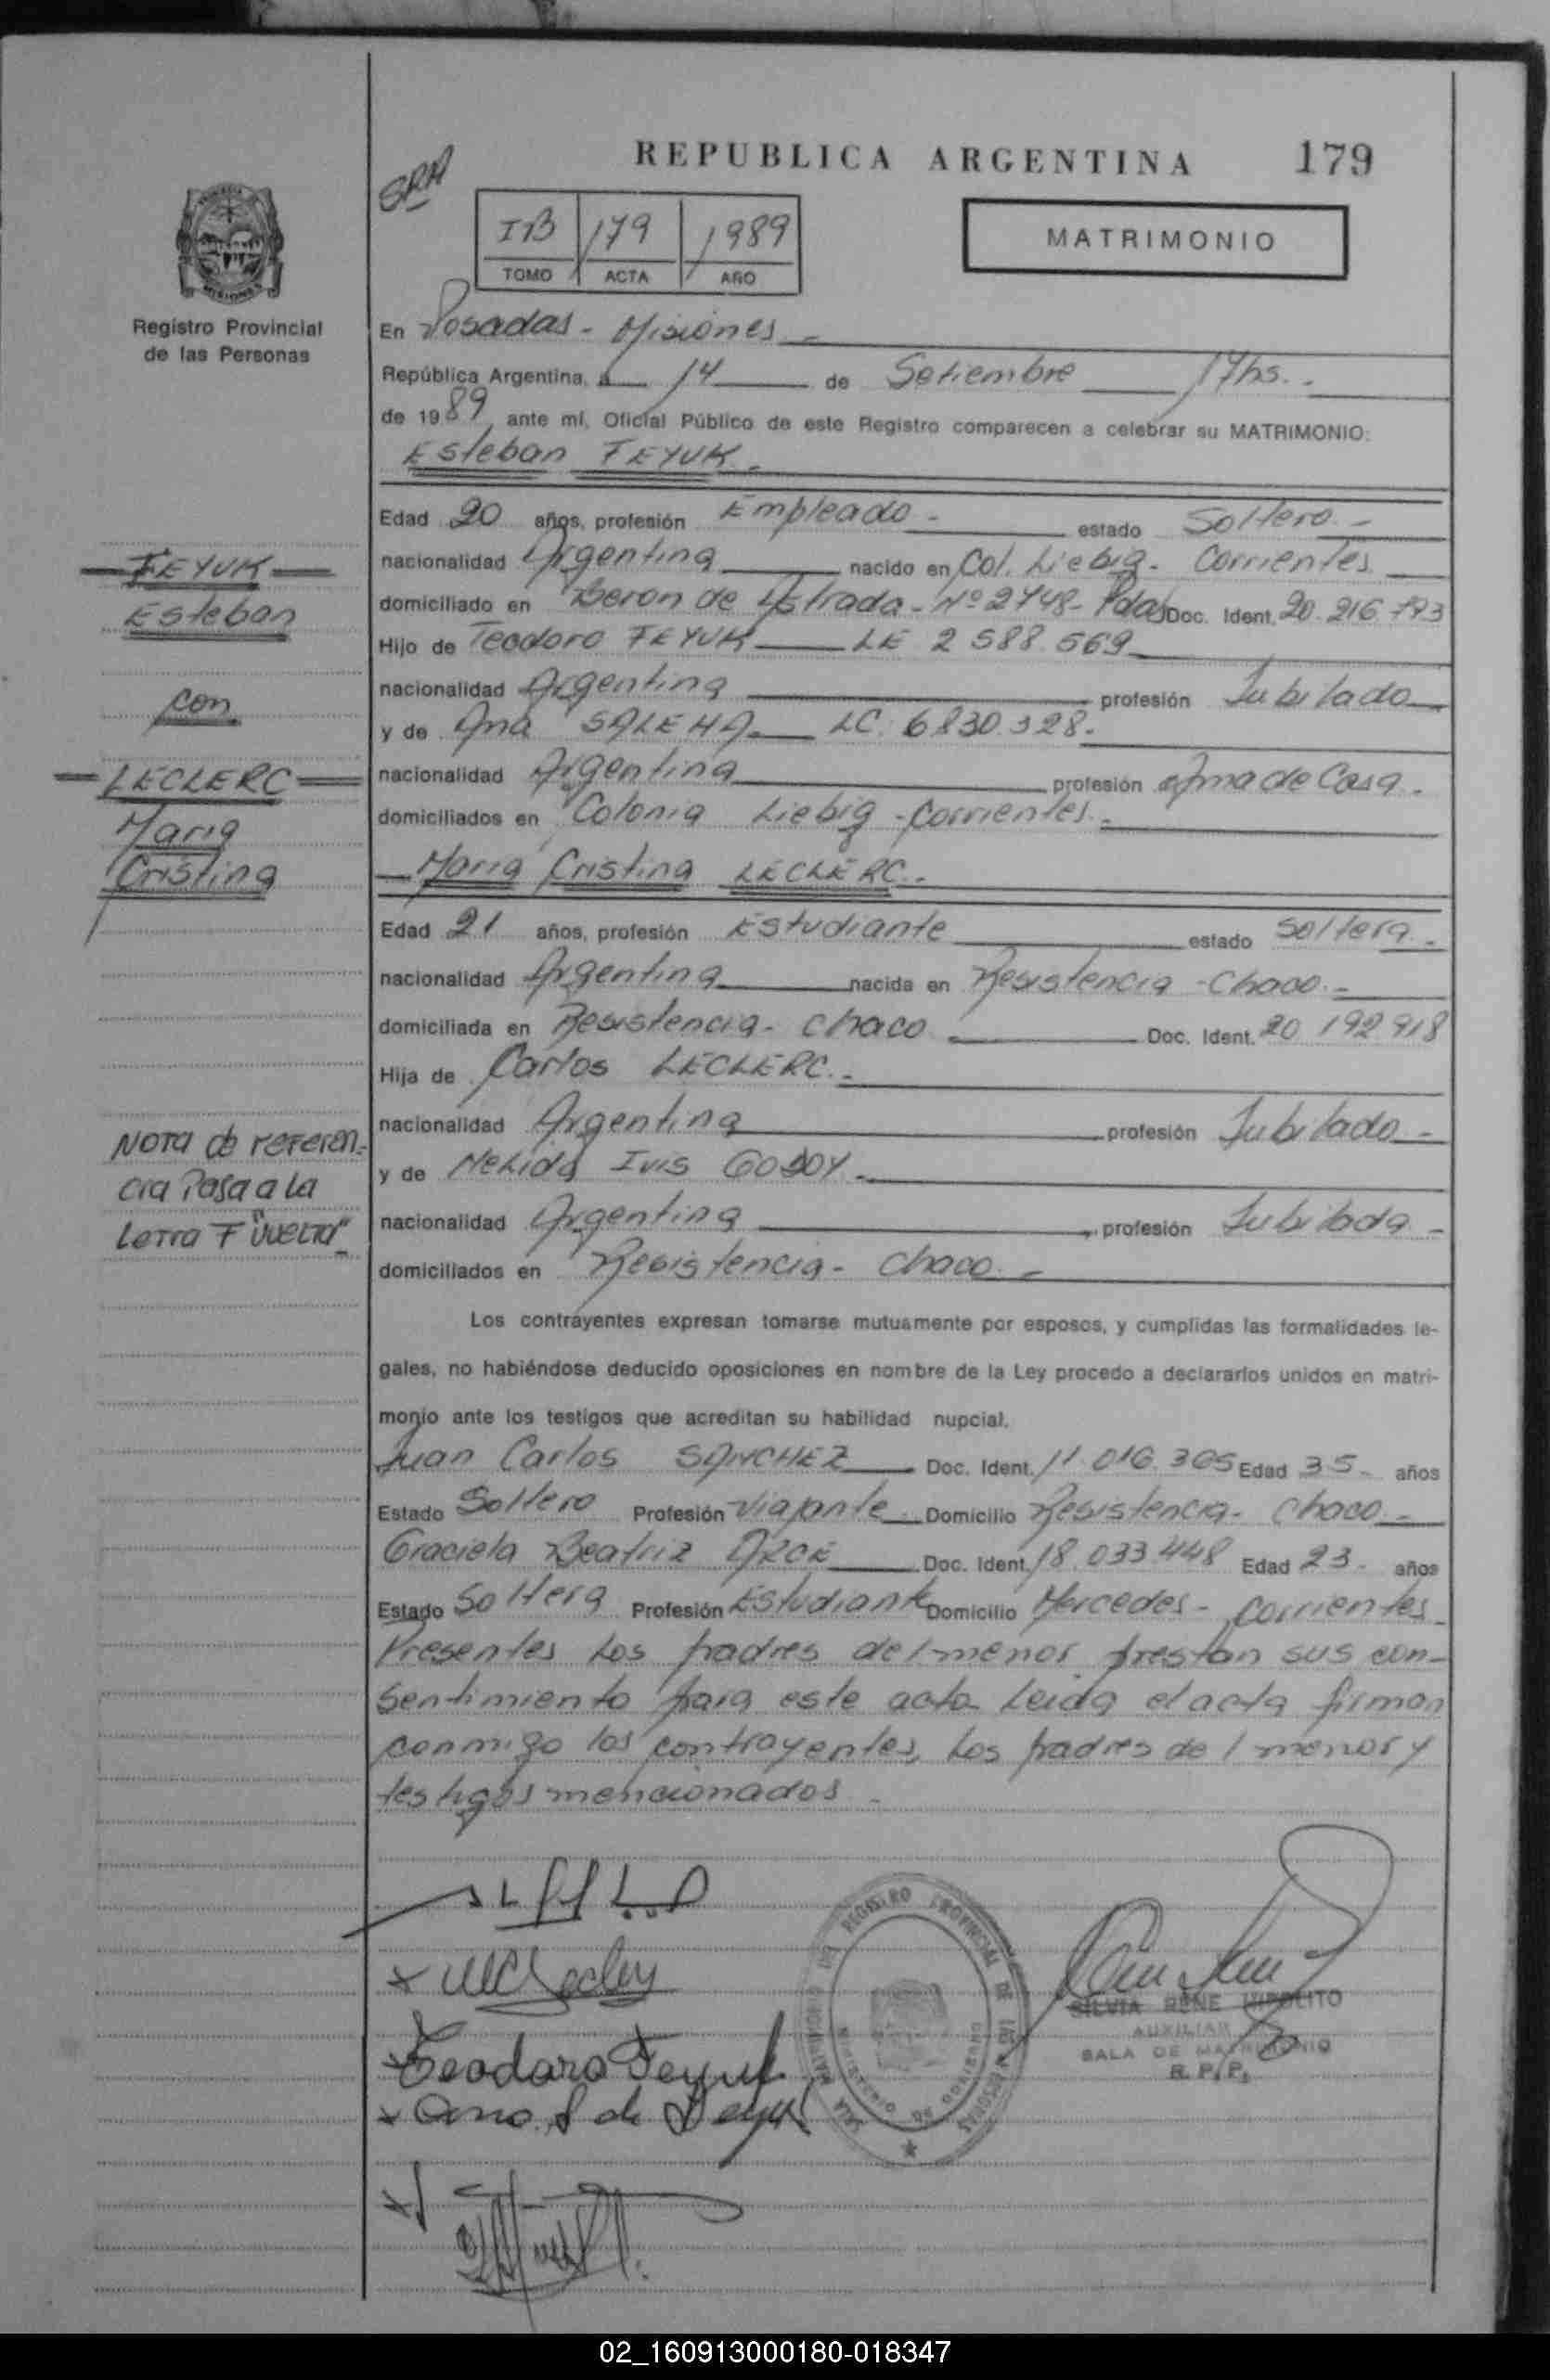 REPUBLICA ARGENTINA 179
SRA
IB 179 1989
TOMO ACTA AÑO
MATRIMONIO
Registro Provincial
de las Personas
En Posadas - Misiones.-
República Argentina, a 14 de Setiembre 17hs.-
de 1989 ante mí, Oficial Público de este Registro comparecen a celebrar su MATRIMONIO:
Esteban FEYUK.-
Edad 20 años, profesión Empleado.- estado Soltero.-
nacionalidad Argentina nacido en Col. Liebig - Corrientes
domiciliado en Beron de Astrada - Nº 2748 - Pdas Doc. Ident. 20.216.793
Hijo de Teodoro FEYUK LE 2588.569
nacionalidad Argentina profesión Jubilado
y de Ana SALEHA LC. 6830.328.-
nacionalidad Argentina profesión Ama de Casa.-
domiciliados en Colonia Liebig - Corrientes.-
Maria Cristina LECLERC.-
Edad 21 años, profesión Estudiante estado Soltera.-
nacionalidad Argentina nacida en Resistencia - Chaco.-
domiciliada en Resistencia - Chaco Doc. Ident. 20 192 918
Hija de Carlos LECLERC.-
nacionalidad Argentina profesión Jubilado -
y de Nelida Ivis GODOY.-
nacionalidad Argentina profesión Jubilada -
domiciliados en Resistencia - Chaco.-
Los contrayentes expresan tomarse mutuamente por esposos, y cumplidas las formalidades le-
gales, no habiéndose deducido oposiciones en nombre de la Ley procedo a declararlos unidos en matri-
monio ante los testigos que acreditan su habilidad nupcial.
Juan Carlos SANCHEZ Doc. Ident. 11.016.305 Edad 35 años
Estado Soltero Profesión Viajante Domicilio Resistencia - Chaco.-
Graciela Beatriz ARCE Doc. Ident. 18.033.448 Edad 23 años
Estado Soltera Profesión Estudiante Domicilio Mercedes - Corrientes
Presentes los padres del menor prestan sus con-
sentimiento para este acto. Leida el acta firman
conmigo los contrayentes, los padres del menor y
testigos mencionados.-
FEYUK
Esteban
con
LECLERC
Maria
Cristina
Nota de referen-
cia Pasa a la
Letra F "vuelta"
Teodoro Feyuk
Ana S de Feyuk
SALA MATRIMONIO DEL REGISTRO PROVINCIAL DE LAS PERSONAS
SILVIA RENE HIPOLITO
AUXILIAR
SALA DE MATRIMONIO
R. P. P.
02_160913000180-018347